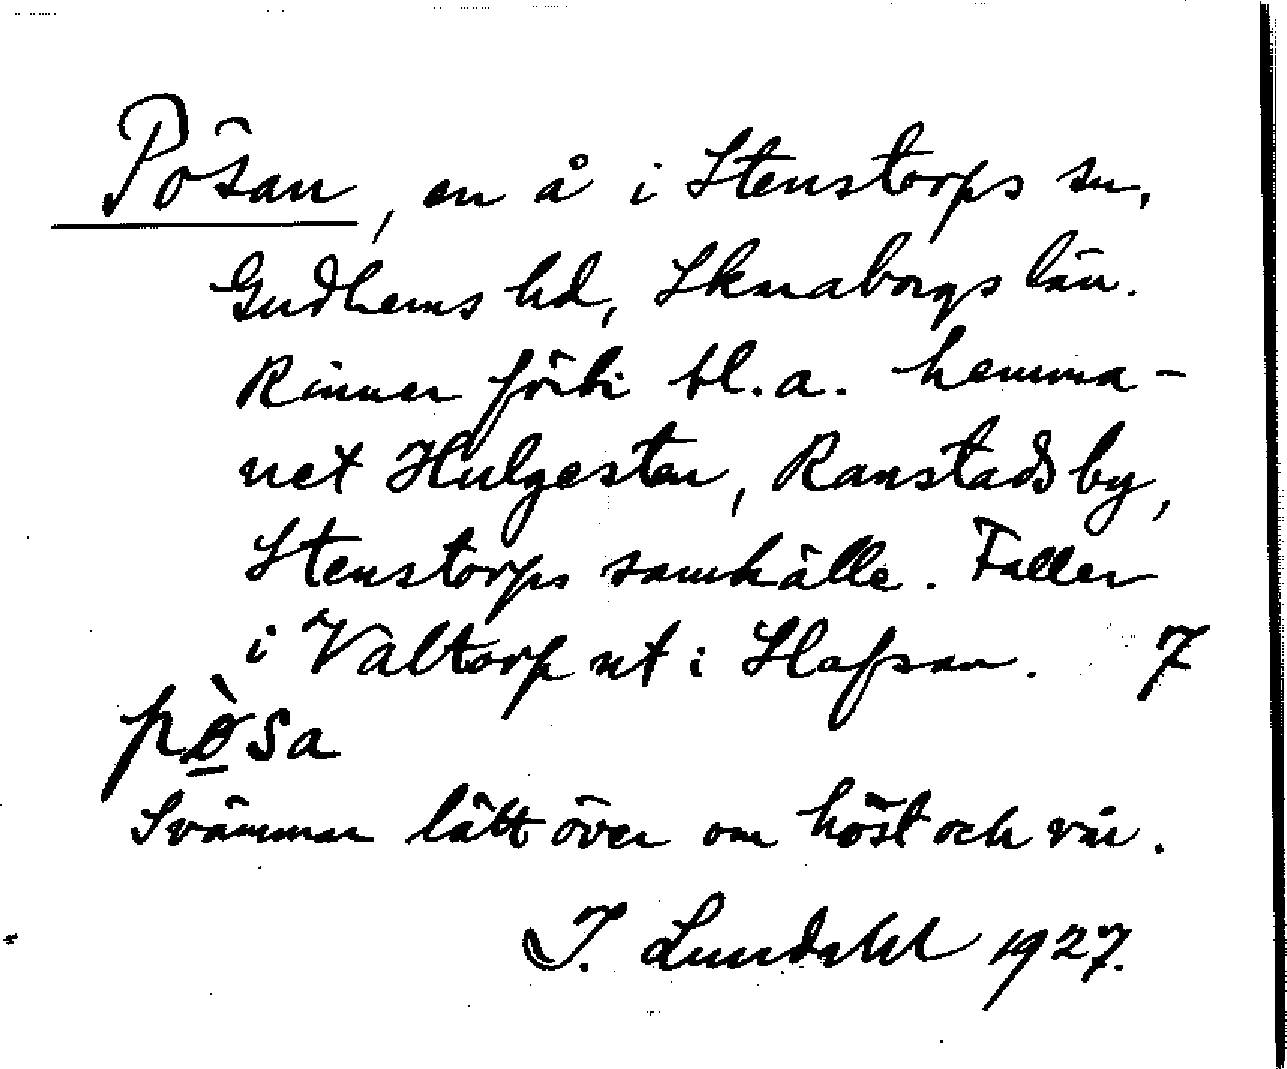 Pösan, en å i Stenstorps sn,
Gudhems hd, Skaraborgs län.
Rinner förbi bl.a. hemma-
net Hulgesten, Ranstads by,
Stenstorps samhälle. Faller
i Valtorp ut i Slafsan. 7
pø̀sa
Svämmar lätt över om höst och vår.
I. Lundahl 1927.